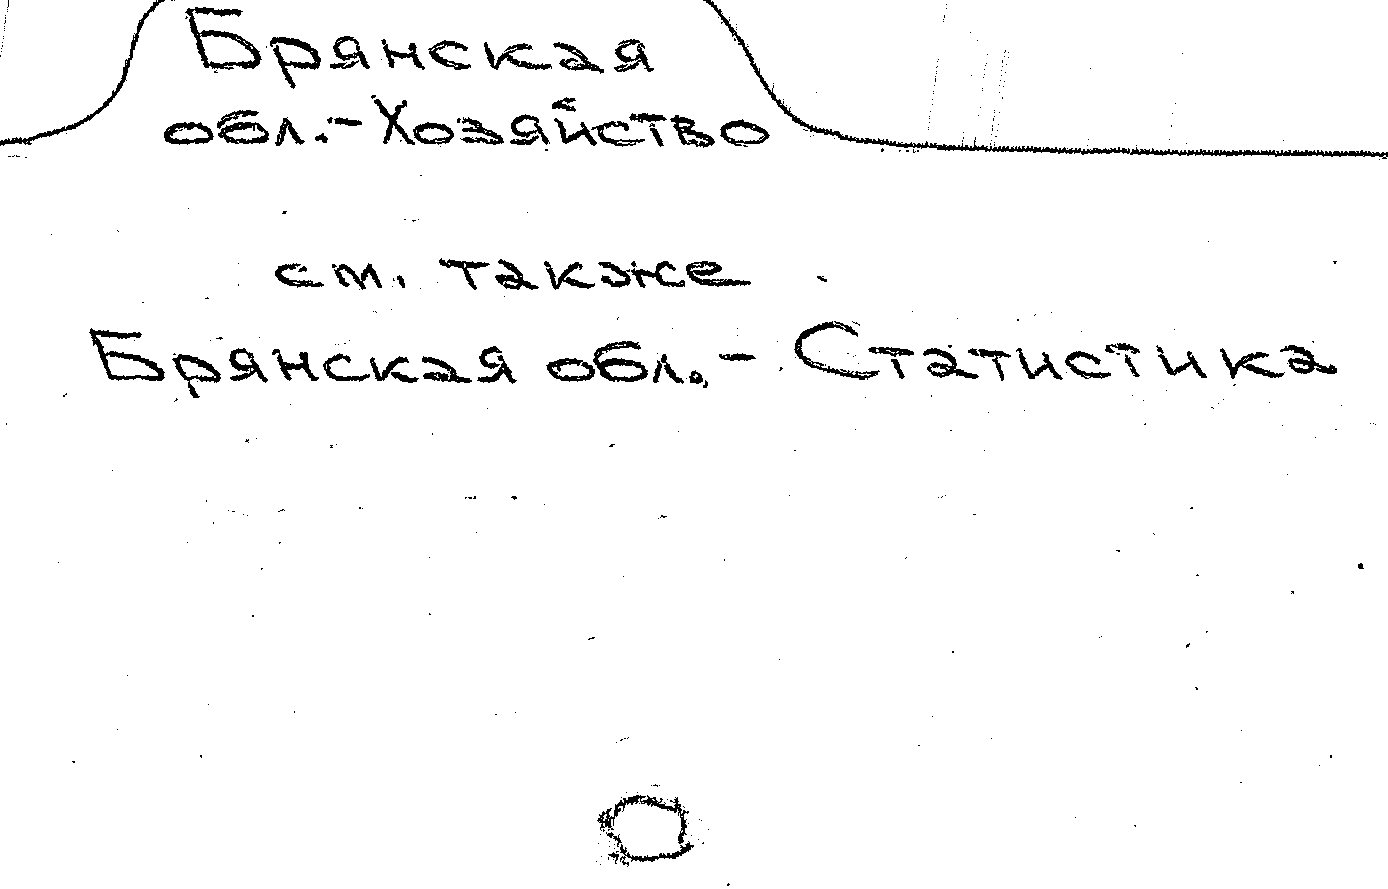 Брянская
обл.-Хозяйство
см. также
Брянская обл.- Статистика